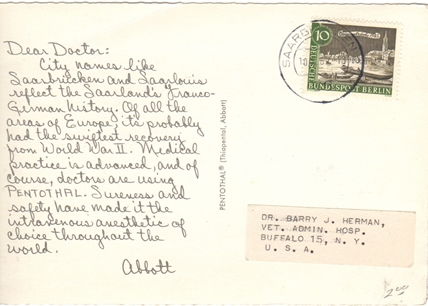 Dear Doctor:
City names like
Saarbrücken and Saarlouis
reflect the Saarland's Franco-
German history. Of all the
areas of Europe its probably
had the swiftest recovery
from World War II. Medical
practice is advanced, and of
course, doctors are using
PENTOTHAL. Sureness and
safety have made it the
intravenous anesthetic of
choice throughout the
world.
Abbott
PENTOTHAL® (Thiopental, Abbott)
SAARB
10
DEUTSCHE
BUNDESPOST BERLIN
DR. BARRY J. HERMAN,
VET. ADMIN. HOSP.
BUFFALO 15, N. Y.
U. S. A.
2.00